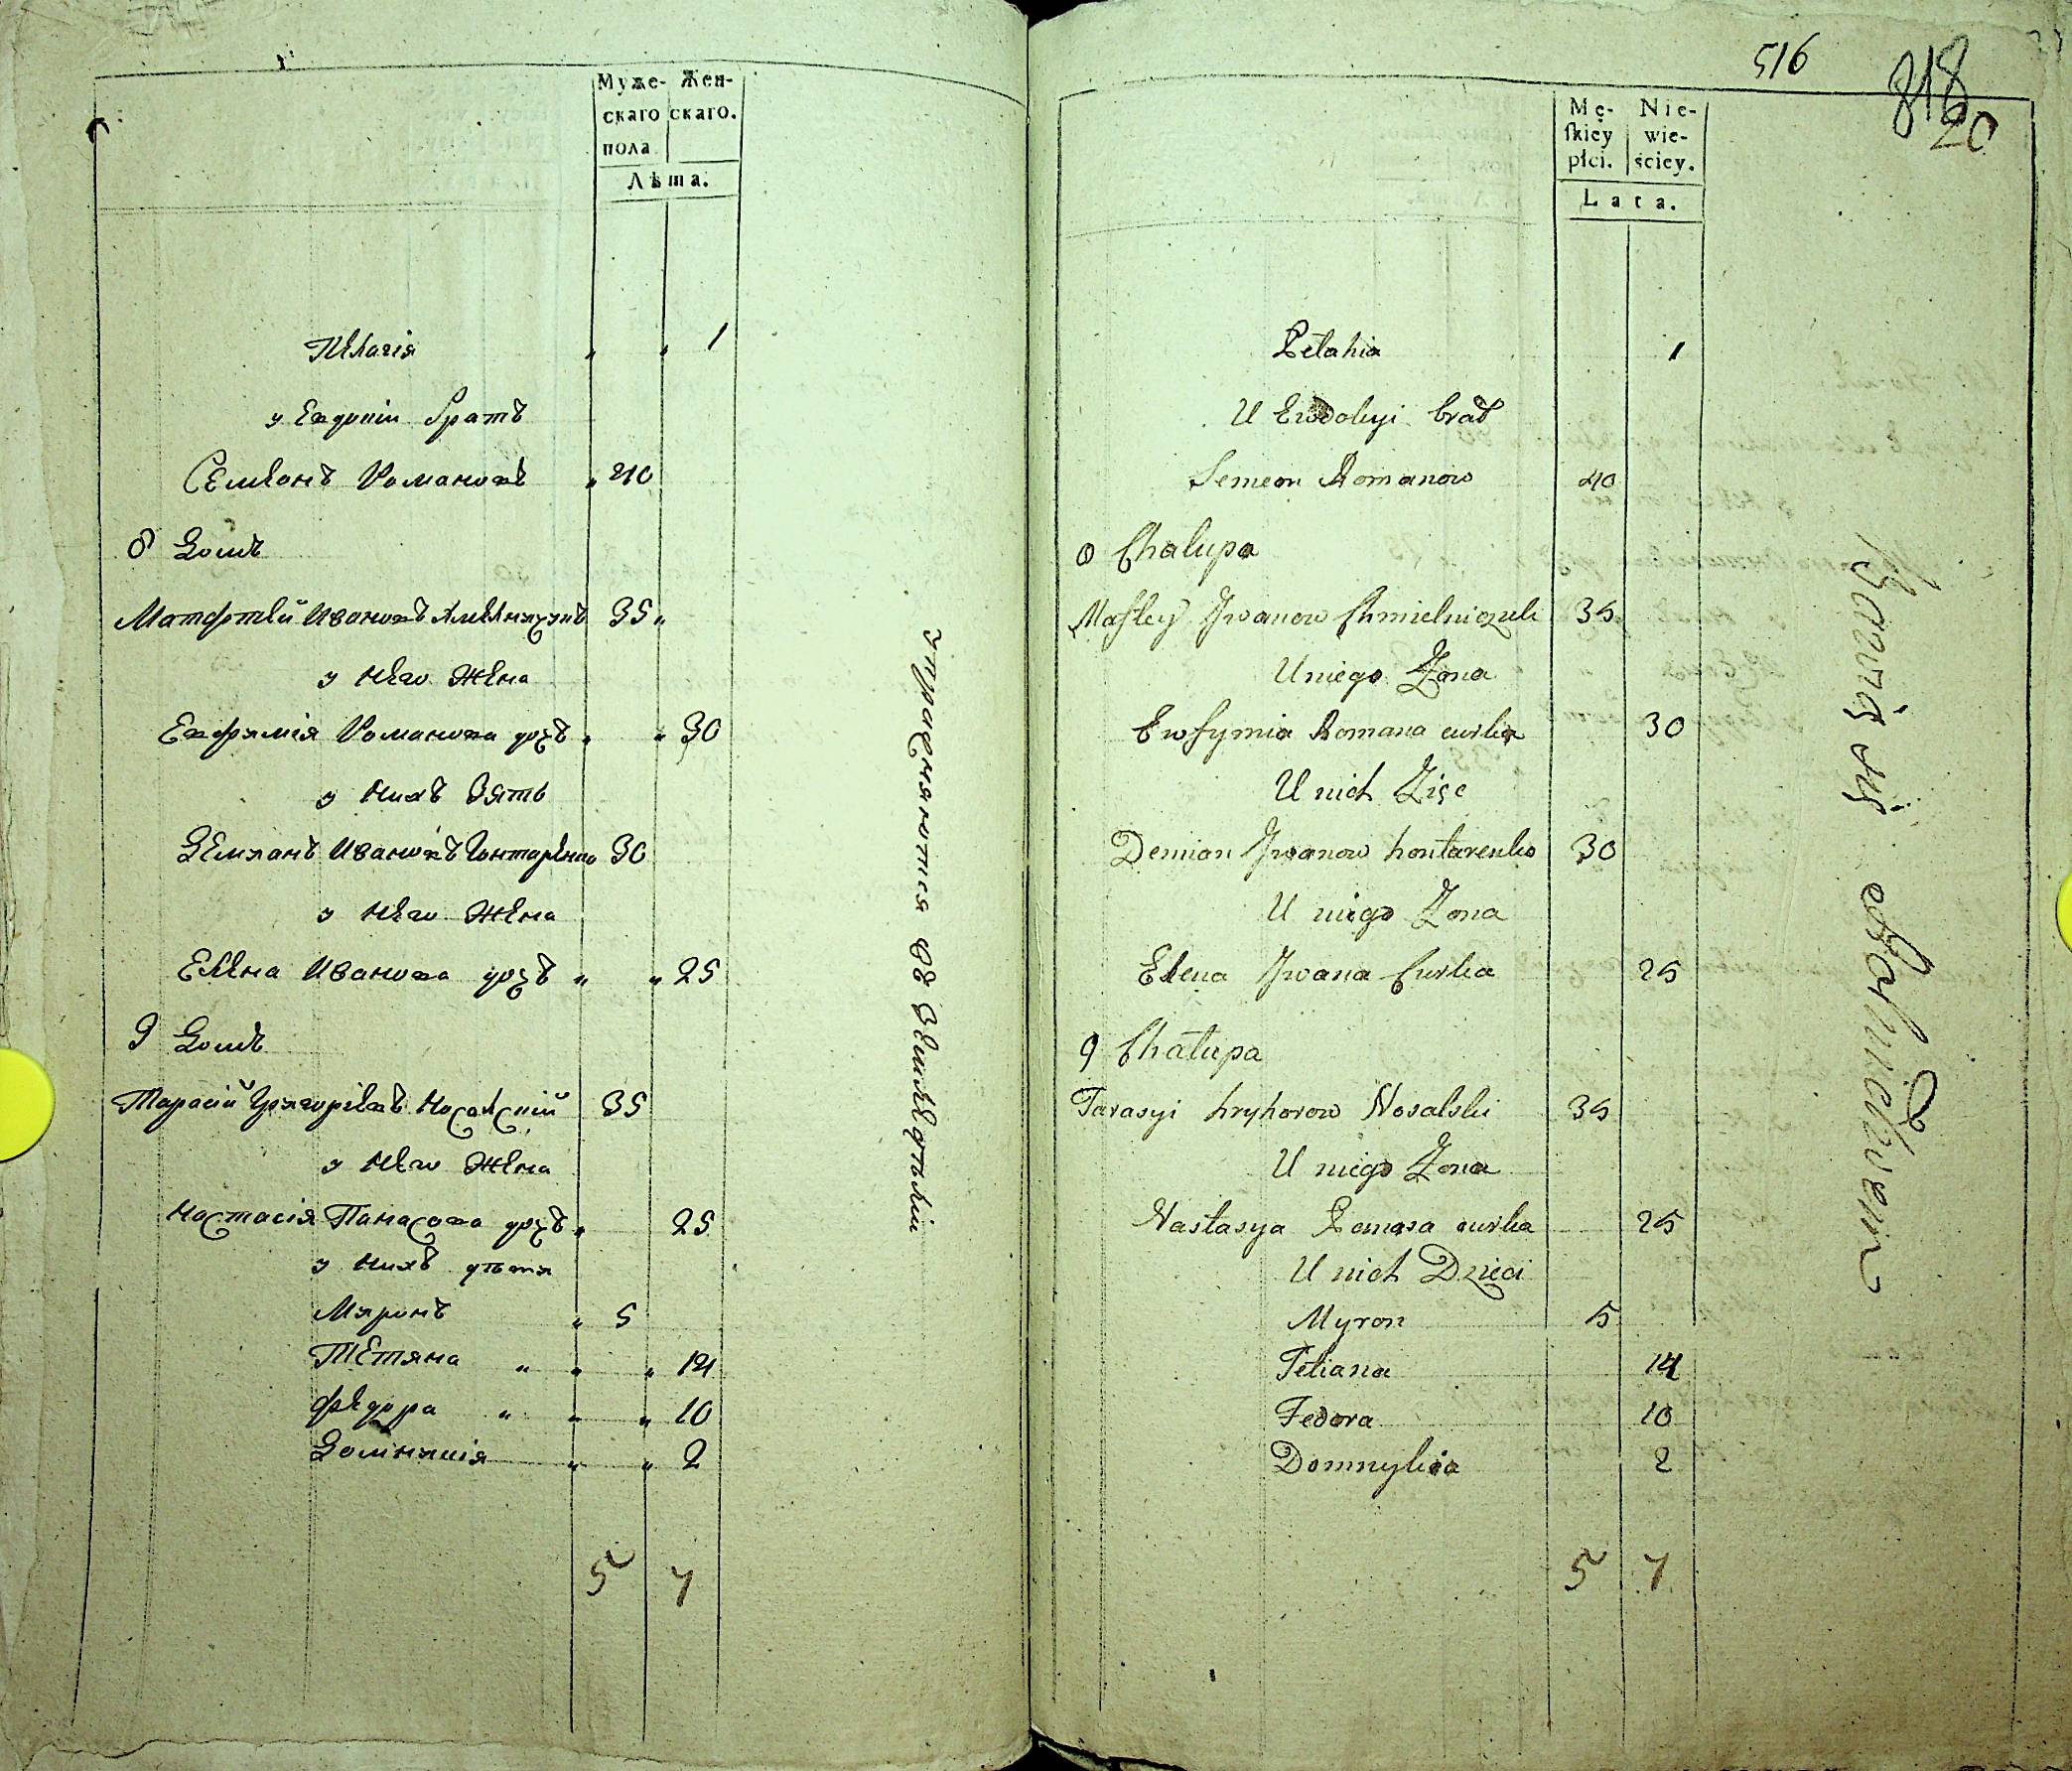 Муже- Жен-
скаго скаго.
пола
Лѣта.
Пелагія " " 1
у Евдокіи братъ
Семіонъ Романовъ " 40
8 Домъ
Матфтей Ивановъ Хмелничукъ 35 "
у него жена
Евфимія Романова дочь " " 30
у нихъ зять
Деміанъ Ивановъ Гонтаренко 30
у него жена
Елена Иванова дочь " " 25
9 Домъ
Тарасій Григоріевъ Носалскій 35
у него жена
Настасія Панасова дочь " 25
у нихъ дѣти
Миронъ " 5
Тетяна " " " 14
Федора " " " 10
Домникія " " 2
5 7
упражняются въ земледѣліи
516
818
20
Mę- Nie-
skiey wie-
płci. ściey.
Lata.
Pelahia 1
U Ewdokyi brat
Semeon Romanow 40
8 Chalupa
Matfey Jwanow Chmielniczuk 35
U niego Zona
Ewfymia Romana curka 30
U nich Zięc
Demian Jwanow hontarenko 30
U niego Zona
Elena Jwana Curka 25
9 Chalupa
Tarasyi hryhorow Nosalski 35
U niego Zona
Nastasya Panasa curka 25
U nich Dzieci
Myron 5
Tetiana 14
Fedora 10
Domnykia 2
5 7
Bawią się Rolnictwem